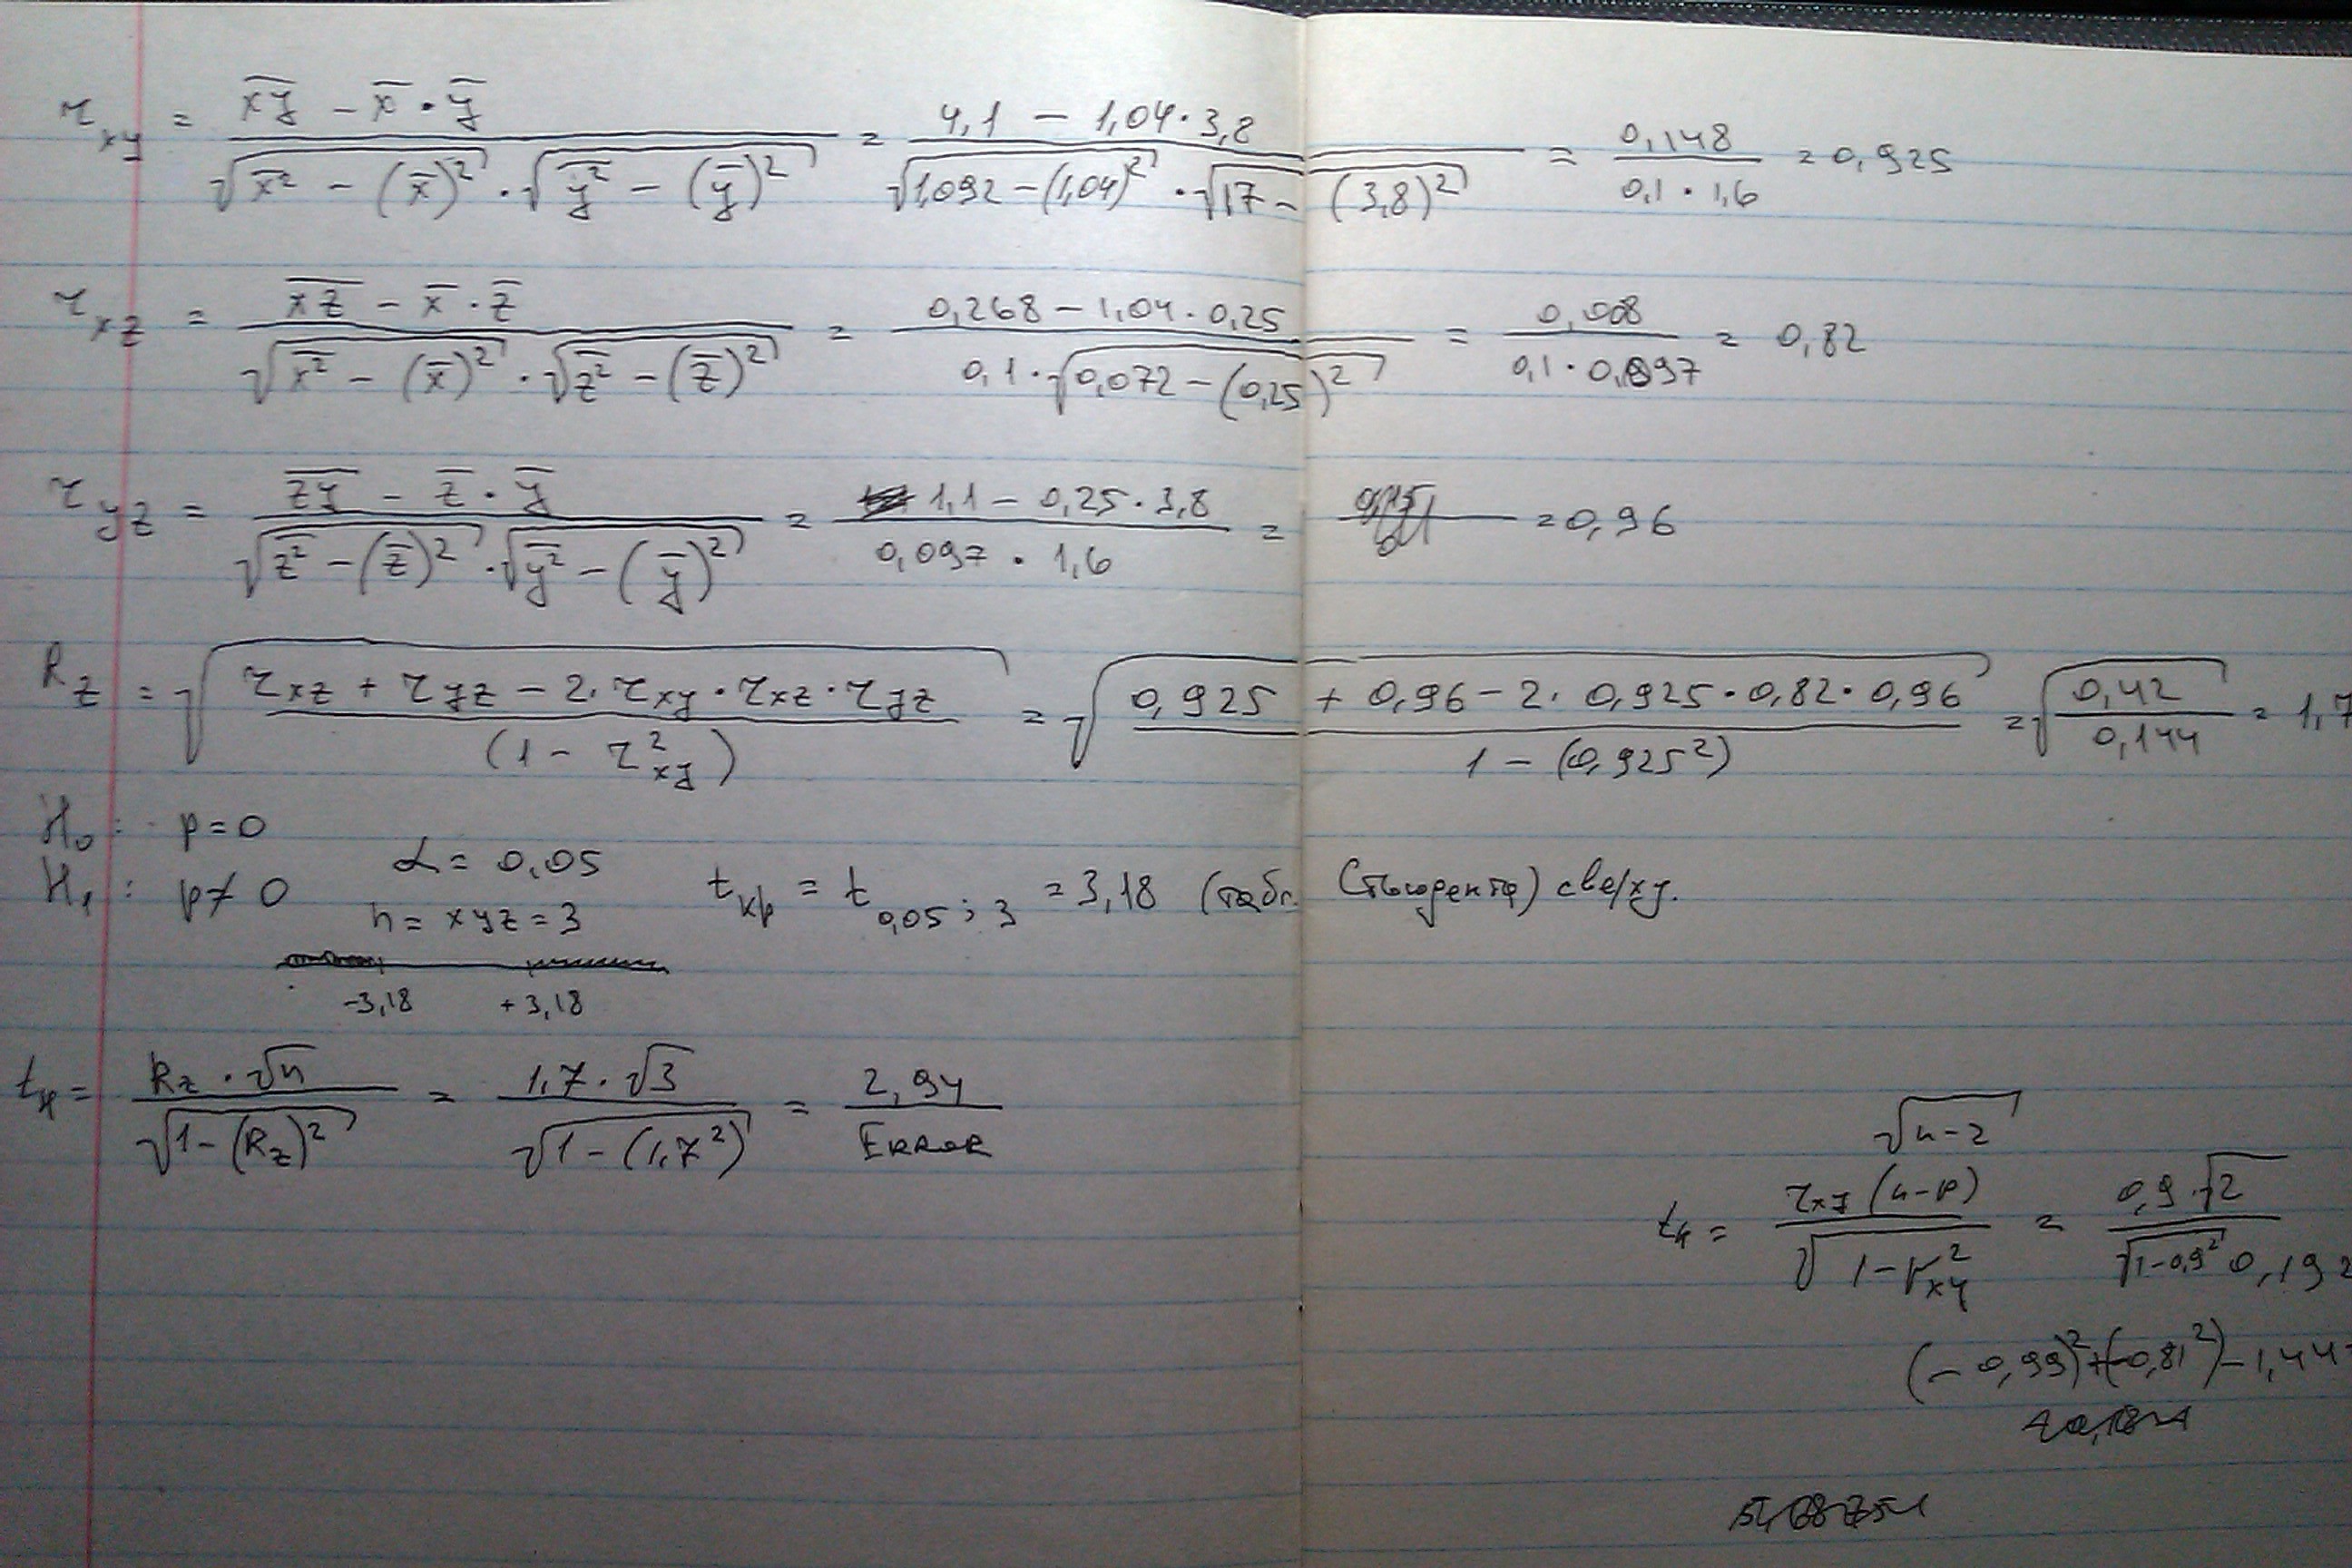 r_xy = (x̅y̅ − x̅ · y̅) / (√(x̅²̅ − (x̅)²) · √(y̅²̅ − (y̅)²)) = (4,1 − 1,04 · 3,8) / (√(1,092 − (1,04)²) · √(17 − (3,8)²)) = 0,148 / (0,1 · 1,6) = 0,925
r_xz = (x̅z̅ − x̅ · z̅) / (√(x̅²̅ − (x̅)²) · √(z̅²̅ − (z̅)²)) = (0,268 − 1,04 · 0,25) / (0,1 · √(0,072 − (0,25)²)) = 0,008 / (0,1 · 0,097) = 0,82
r_yz = (z̅y̅ − z̅ · y̅) / (√(z̅²̅ − (z̅)²) · √(y̅²̅ − (y̅)²)) = (1,1 − 0,25 · 3,8) / (0,097 · 1,6) = = 0,96
R_z = √((r_xz + r_yz − 2 · r_xy · r_xz · r_yz) / (1 − r²_xy)) = √((0,925 + 0,96 − 2 · 0,925 · 0,82 · 0,96) / (1 − (0,925²))) = √(0,42 / 0,144) = 1,7
H₀: p = 0
H₁: p ≠ 0
α = 0,05
n = xyz = 3
t_кр = t_0,05;3 = 3,18 (табл. Стьюдента) сверху.
-3,18 +3,18
t_н = (R_z · √n) / √(1 − (R_z)²) = (1,7 · √3) / √(1 − (1,7²)) = 2,94 / ERROR
√(n−2)
t_н = r_xy (n−p) / √(1 − r²_xy) = 0,9 · √2 / √(1−0,9²) 0,19
(−0,99)²+(−0,81²)−1,44